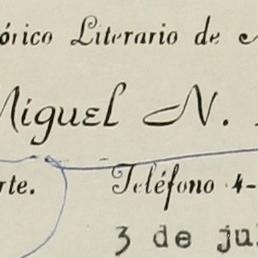 órico Literario de
Miguel N.
rte. Teléfono 4-
3 de jul